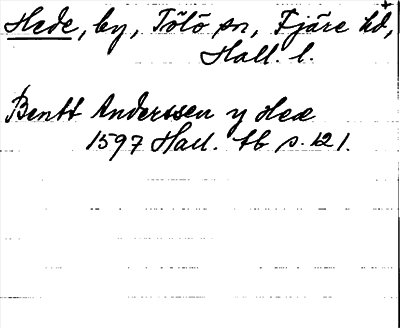 Hede, by, Tölö sn, Fjäre hd,
Hall. l.
Bentt Anderssen y Hee
1597 Hall. tb s. 121.